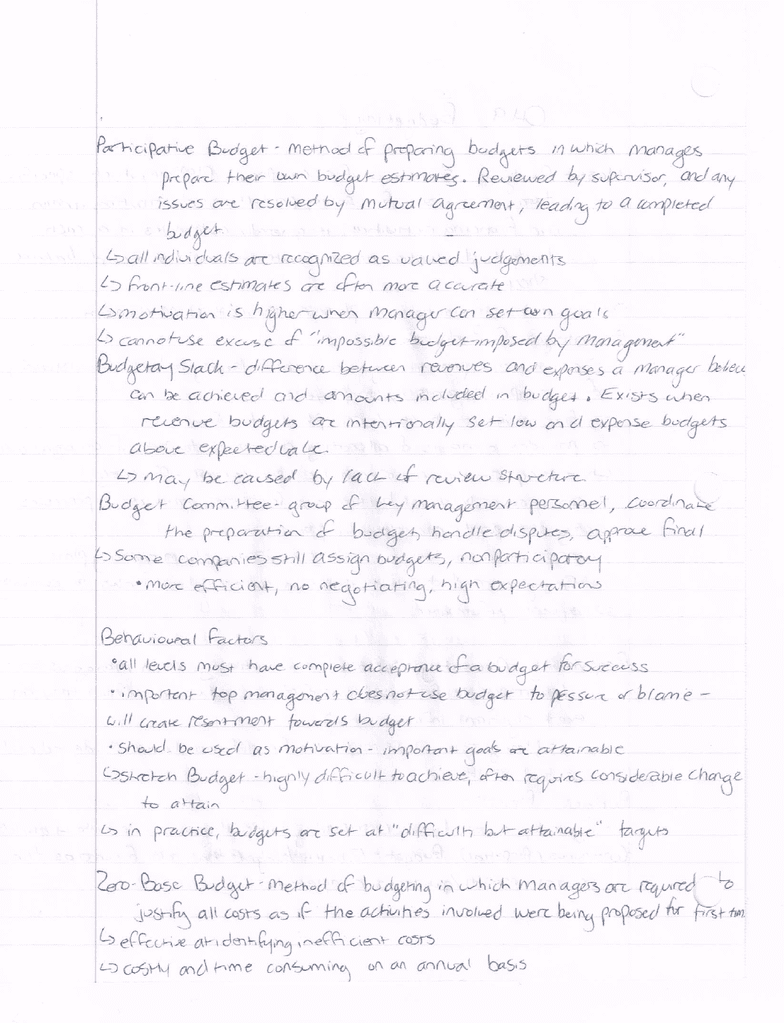 Participative Budget - method of preparing budgets in which manages
prepare their own budget estimates. Reviewed by supervisor, and any
issues are resolved by mutual agreement, leading to a completed
budget
↳ all individuals are recognized as valued judgements
↳ front-line estimates are often more accurate
↳ motivation is higher when manager can set own goals
↳ cannot use excuse of "impossible budget imposed by management"
Budgetary Slack - difference between revenues and expenses a manager believe
can be achieved and amounts included in budget. Exists when
revenue budgets are intentionally set low and expense budgets
above expected value.
↳ may be caused by lack of review structure.
Budget Committee - group of key management personnel, coordinate
the preparation of budget, handle disputes, approve final
↳ Some companies still assign budgets, nonparticipatory
• more efficient, no negotiating, high expectations
Behavioural Factors
• all levels must have complete acceptance of a budget for success
• important top management does not use budget to pressure or blame -
will create resentment towards budget
• should be used as motivation - important goals are attainable
↳ Stretch Budget - highly difficult to achieve, often requires considerable change
to attain
↳ in practice, budgets are set at "difficult but attainable" targets
Zero-Base Budget - method of budgeting in which managers are required to
justify all costs as if the activities involved were being proposed for first time
↳ effective at identifying inefficient costs
↳ costly and time consuming on an annual basis